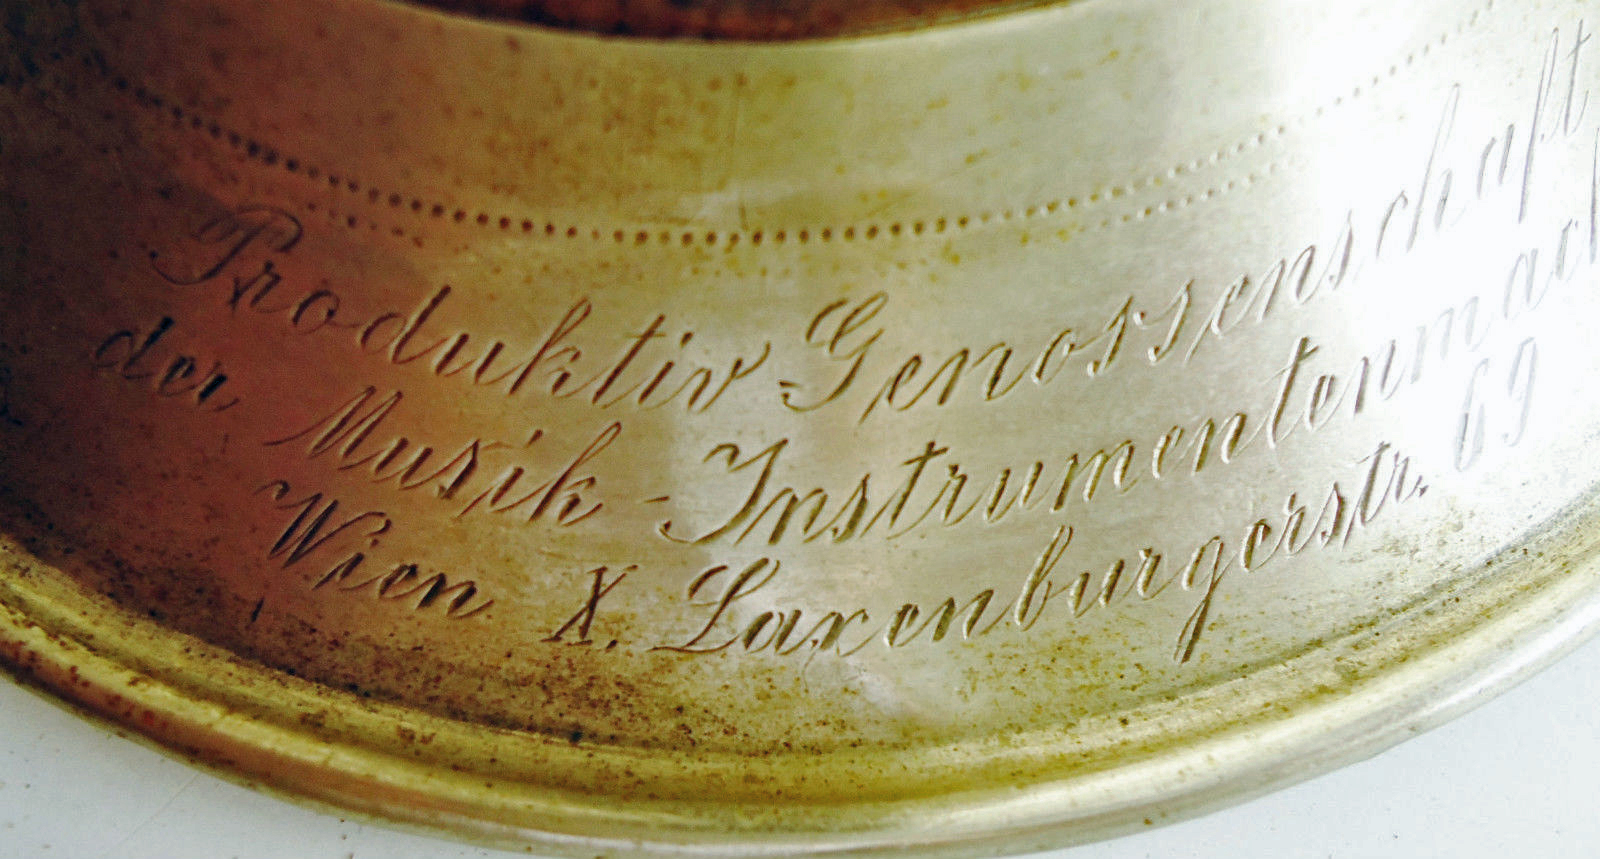 Produktiv-Genossenschaft
der Musik-Instrumentenmach
Wien X. Laxenburgerstr. 69